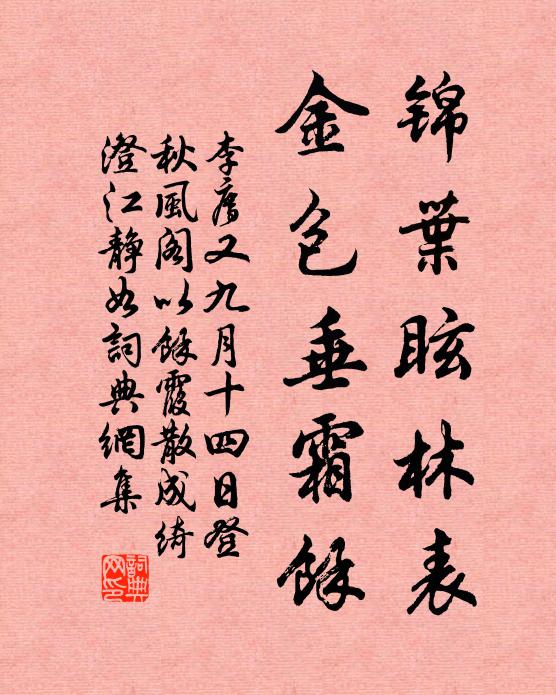 锦葉眩林表
金包垂霜餘
李廌又九月十四日登
秋風閣以餘霞散成綺
澄江静如詞典網集
詞典网印